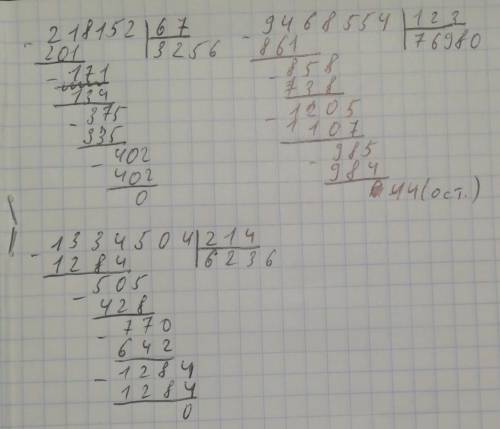 - 218152 | 67
201 | 3256
- 171
134
- 375
335
- 402
402
0
- 9468554 | 123
861 | 76980
- 858
738
- 1205
1107
- 985
984
44 (ост.)
- 1334504 | 214
1284 | 6236
- 505
428
- 770
642
- 1284
1284
0